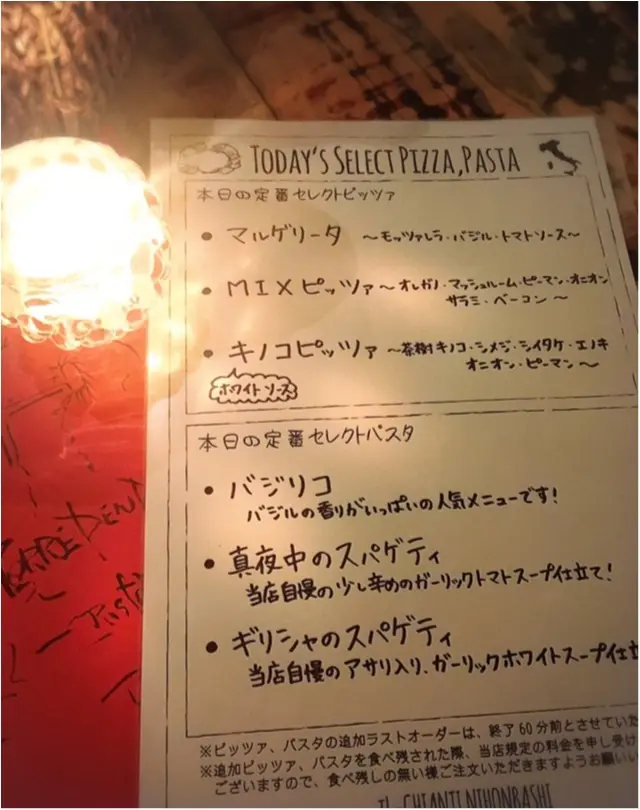 TODAY'S SELECT PIZZA,PASTA
本日の定番セレクトピッツァ
• マルゲリータ 〜モッツァレラ・バジル・トマトソース〜
• MIXピッツァ〜オレガノ・マッシュルーム・ピーマン・オニオン
サラミ・ベーコン〜
• キノコピッツァ 〜茶樹キノコ・シメジ・シイタケ・エノキ
オニオン・ピーマン〜
ホワイトソース
本日の定番セレクトパスタ
• バジリコ
バジルの香りがいっぱいの人気メニューです!
• 真夜中のスパゲティ
当店自慢の少し辛めのガーリックトマトスープ仕立て!
• ギリシャのスパゲティ
当店自慢のアサリ入り、ガーリックホワイトスープ仕立
※ピッツァ、パスタの追加ラストオーダーは、終了60分前とさせていた
※追加ピッツァ、パスタを食べ残された際、当店規定の料金を申し受け
ございますので、食べ残しの無い様ご注文いただきますようお願いい
IL CHIANTI NIHONBASHI